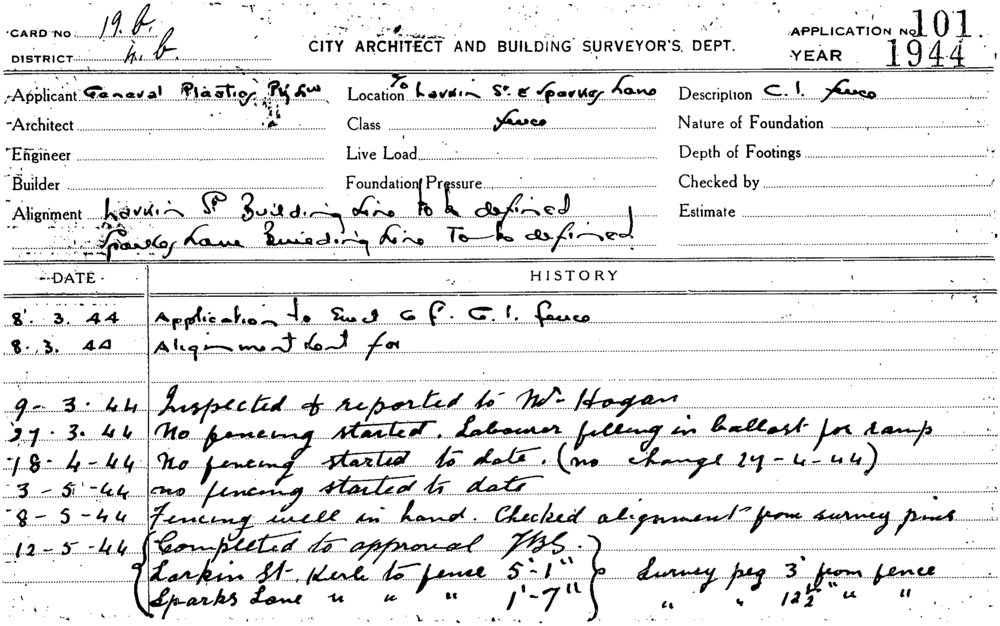 CARD NO 19.b.
DISTRICT 4.b.
CITY ARCHITECT AND BUILDING SURVEYOR'S. DEPT.
APPLICATION No 101.
YEAR 1944
Applicant General Plastics Pty Ltd Location Larkin St. & Sparkes Lane Description C. I. fence
Architect Class fence Nature of Foundation
Engineer Live Load Depth of Footings
Builder Foundation Pressure Checked by
Alignment Larkin St Building Line to be defined Estimate
Sparkes Lane Building Line To be defined
DATE HISTORY
8. 3. 44 Application to Erect 6 f. G. I. fence
8. 3. 44 Alignment sent for
9 - 3. 44 Inspected & reported to Mr Hogan
27. 3. 44 No fencing started. Labourer filling in ballast for ramp
18 - 4 - 44 No fencing started to date. (no change 27 - 4 - 44)
3 - 5 - 44 no fencing started to date
8 - 5 - 44 Fencing well in hand. Checked alignment from survey pins
12 - 5 - 44 Completed to approval
Larkin St. Kerb to fence 5'-1" Survey peg 3' from fence
Sparks Lane " " " 1'-7" " " 12½" " "